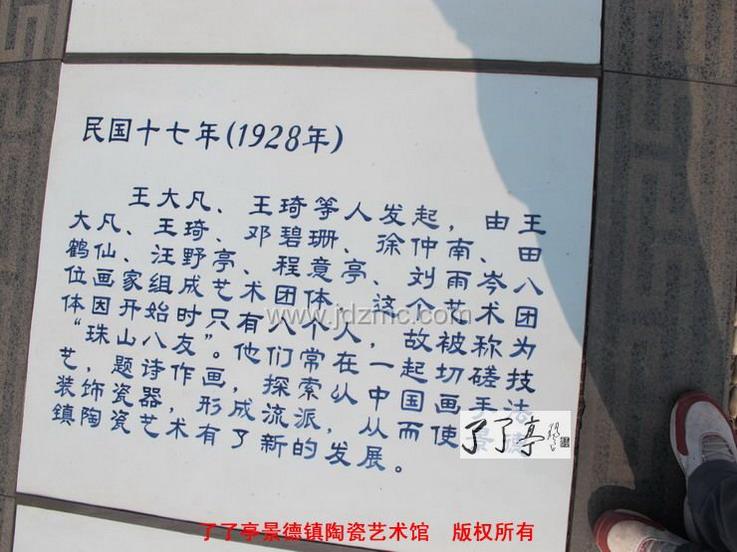 民国十七年(1928年)
王大凡、王琦等人发起，由王
大凡、王琦、邓碧珊、徐仲南、田
鹤仙、汪野亭、程意亭、刘雨岑八
位画家组成艺术团体。这个艺术团
体因开始时只有八个人，故被称为
www.jdzmc.com
“珠山八友”。他们常在一起切磋技
艺，题诗作画，探索从中国画手法
装饰瓷器，形成流派，从而使景德
鎮陶瓷艺术有了新的发展。
了了亭
了了亭景德镇陶瓷艺术馆 版权所有